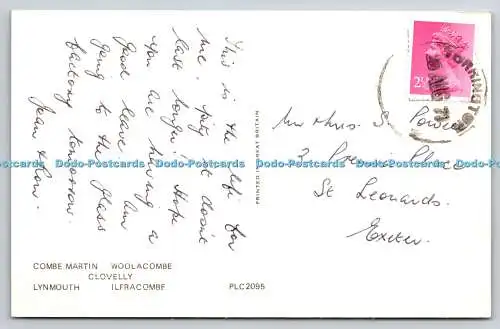 This is the life for
me, pity it don't
last longer. Hope
you are having a
good leave. Am
going to the glass
factory tomorrow.
Jean & Ron.
COMBE MARTIN WOOLACOMBE
CLOVELLY
LYNMOUTH ILFRACOMBE
PLC2095
PRINTED IN GREAT BRITAIN
2½
TORRINGTON
AUG 71
Mr & Mrs S. Powell
2 Place
St Leonards
Exeter.
Dodo-Postcards Dodo-Postcards Dodo-Postcards Dodo-Postcards Dodo-Postcards